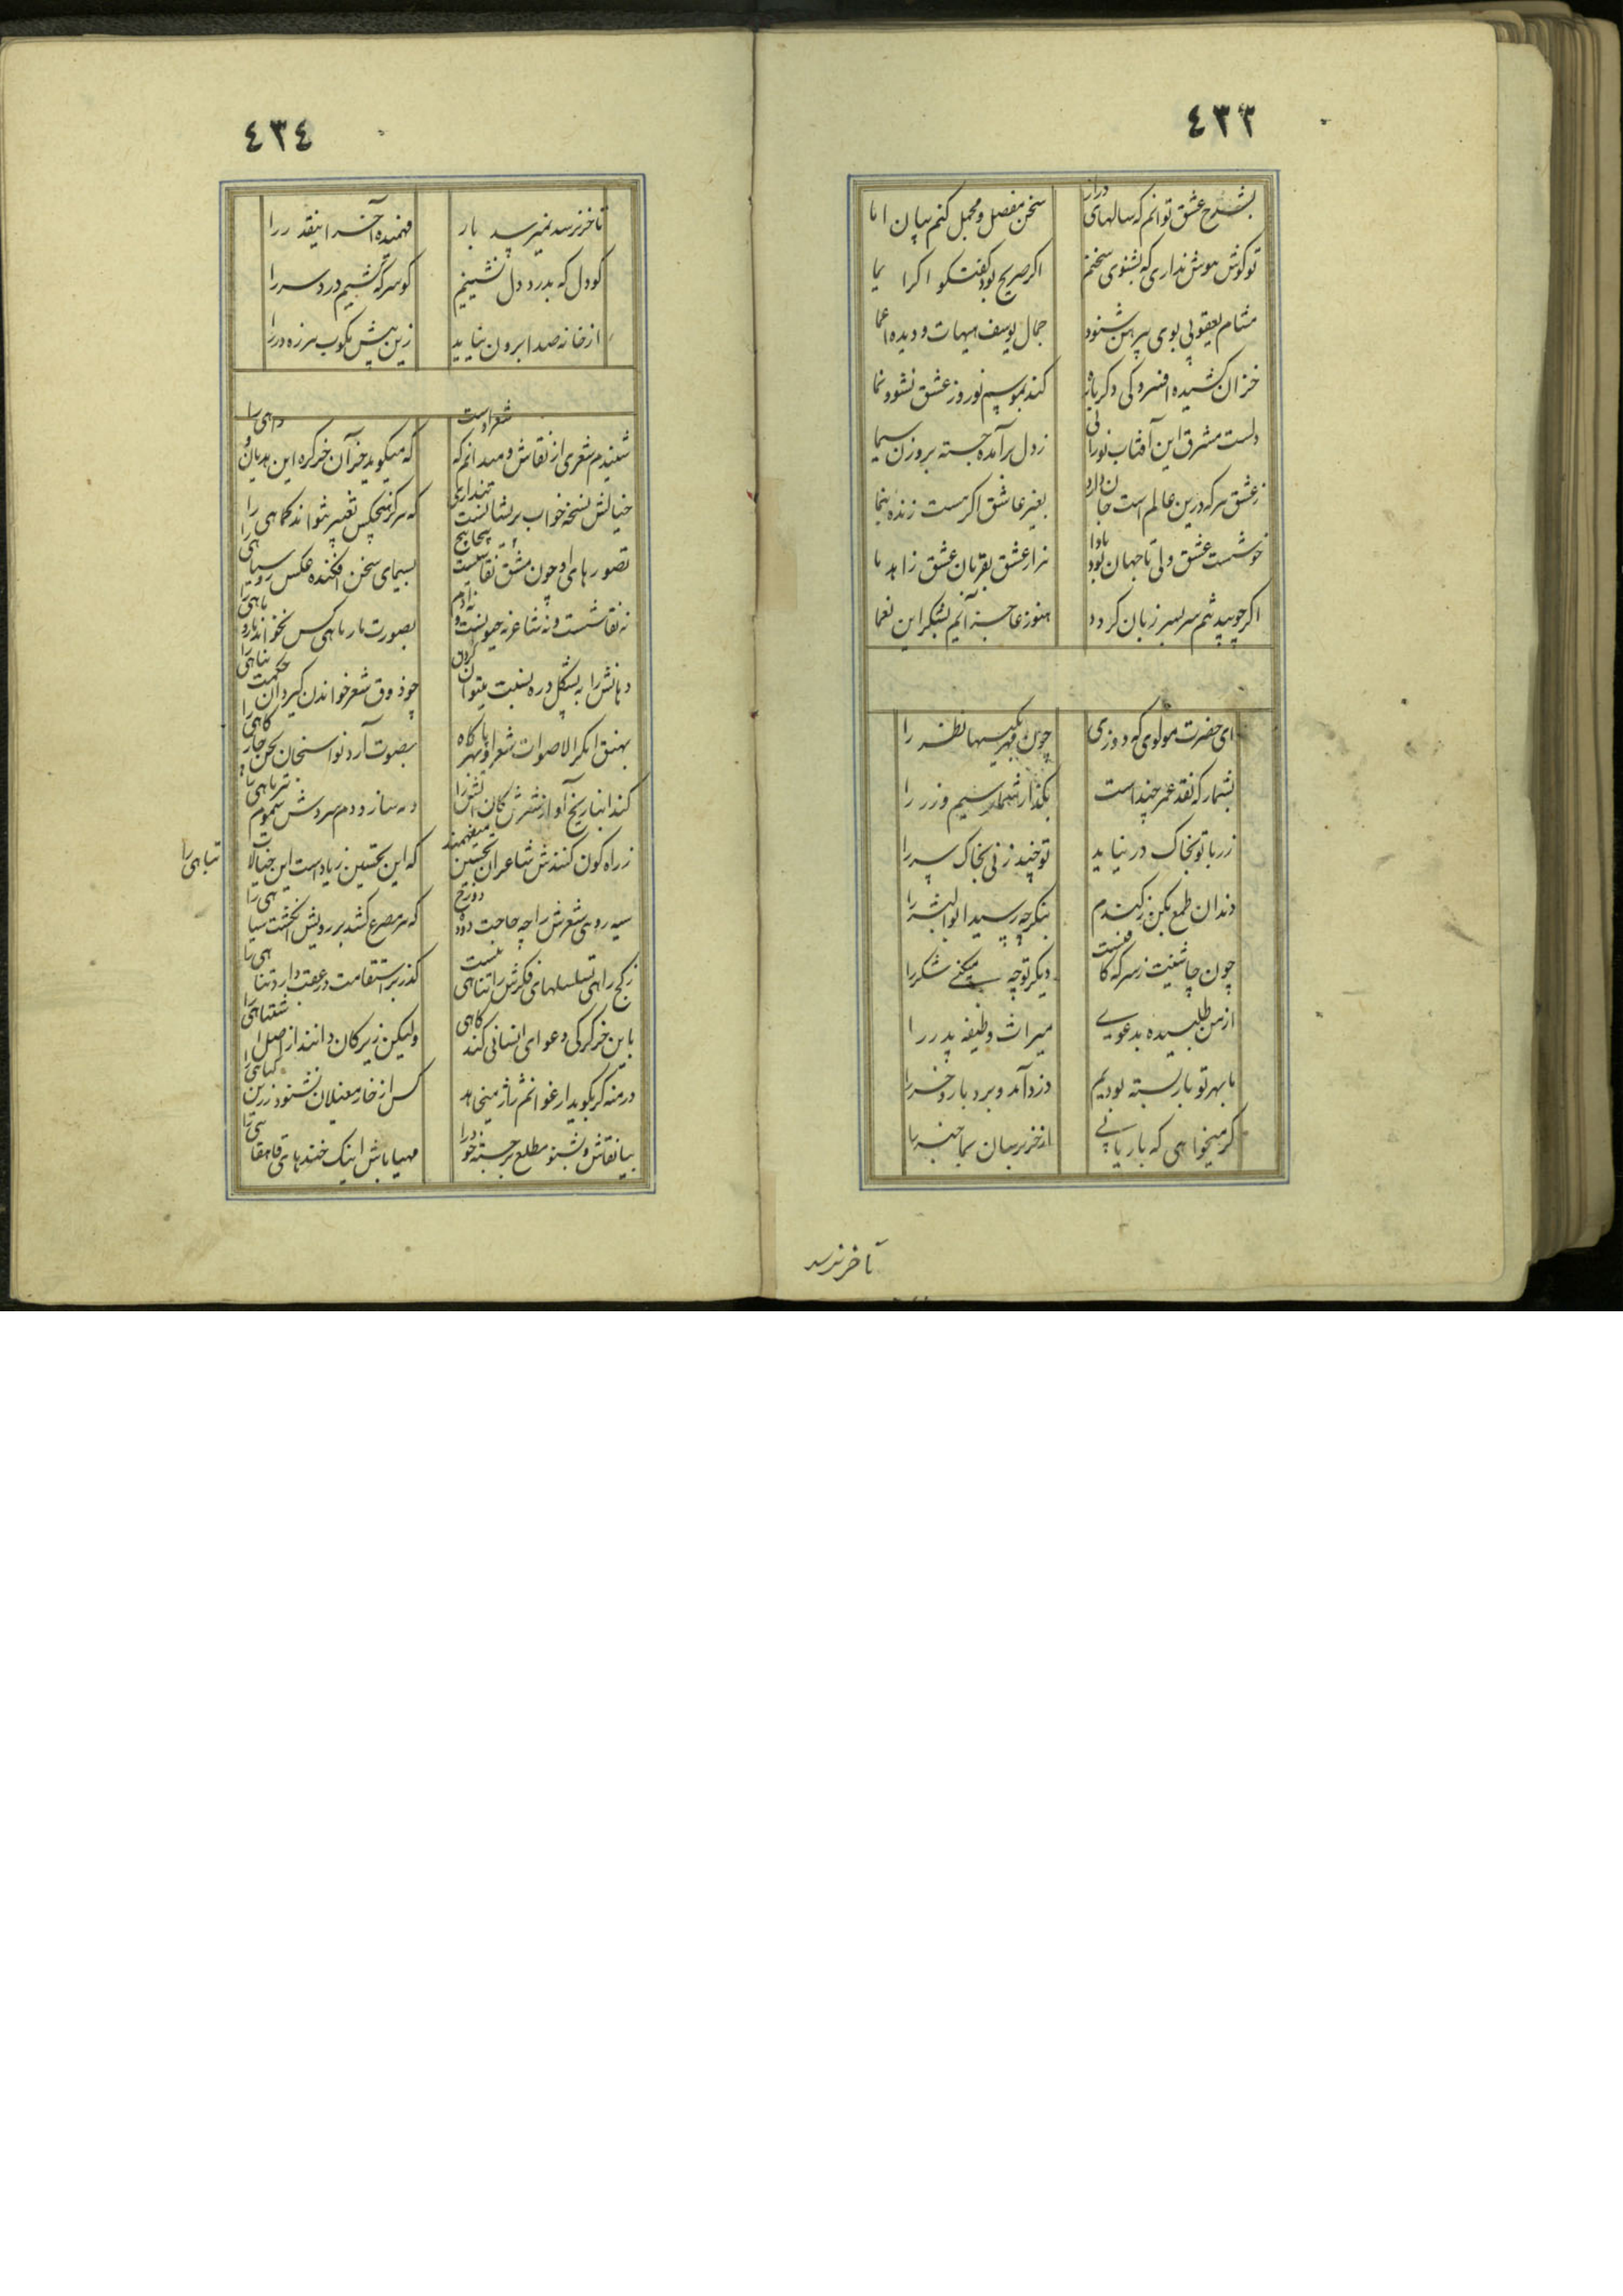 ٤٣٣
بشرح عشق توانم که سالهای دراز
سخن مفصل و مجمل کنم بیان اما
تو گوش هوش نداری که بشنوی سخنم
اگر صریح بود گفتگو اگر ایما
مشام یعقوبی بوی پیرهن شنود
جمال یوسف هیهات و دیده اعما
خزان کشیده افسردگی دگرباره
کند بموسم نوروز عشق نشو و نما
دلست مشرق این آفتاب نورانی
ز دل برآمده جسته بروزن سیما
ز عشق هر که درین عالم است جان دارد
بغیر عاشق اگر هست زنده بنما
خوشست عشق ولی تا جهان بود بادا
هزار عشق بقربان عشق زاهد ما
اگر چو بید تنم سر بسر زبان گردد
هنوز عاجز آیم بشکر این نعما
ای حضرت مولوی که دوزی
چون فهر بکیسها نظر را
بشمار که نقد عمر چند است
بگذار شمار سیم و زر را
زر با تو بخاک در نیاید
تو چند زنی بخاک سر را
دندان طمع بکن ز گندم
بنگر چه رسید ابوالبشر را
چون چاشنیت ز سرکه کافیست
دیگر تو چه میکنی شکر را
از من طلبیده بدعوی
میراث وظیفه پدر را
ما بهر تو بار بسته بودیم
دزد آمد و برد بار و خر را
گر میخواهی که بار یابی
از خر برسان بما خبر را
تا خر نرسد
٤٣٤
تا خر نرسد نمیرسد بار
فهمیده آخر اینقدر را
کو دل که بدرد دل نشینیم
کو سر که کشیم دردسر را
از خانه صدا برون نیاید
زین بیش مکوب هرزه در را
شنیدم شعری از نقاش و میدانم که شعر اوست
که میگوید خر آن خرکره این هذیان واهی را
خیالش نسخه خواب پریشانست پنداری
که هرگز هیچکس تعبیر نتواند کماهی را
تصورهای او چون مشق نقاشیست پیچاپیچ
بسیمای سخن افکنده عکس روسیاهی را
نه نقاشست و نه شاعر نه حیوانست و نه آدم
بصورت مارماهی کس نخواند مار و ماهی را
دهانش را بشکل دره نسبت میتوان کردن
چو ذوق شعر خواندن گیرد آن حکمت پناهی را
بهنق انکر الاصوات شعر او بهر پایگاه
بصوت آرد نواسنجان لحن خارگاهی را
زراه کون کنندش شاعران تحسین میفهمند
که این تحسین زیاد است این خیالات تباهی را
سیه روی شعرش را چه حاجت دوده دوزخ
که هر مصرع کشد بر رویش انگشت سیاهی را
ز کج راهی تسلسلهای فکرش را تناهی نیست
باین خر کرکی دعوای انسانی کند گاهی
ولیکن زیرکان دانند از اصل اشتباهی را
درمنه گر بگوید ارغوانم ژاژ میخاید
کس از خار مغیلان نشنود زرین گیاهی را
بیا نقاش و بشنو مطلع برجسته خود را
مهیا باش اینک خندهای قاهقاهی را